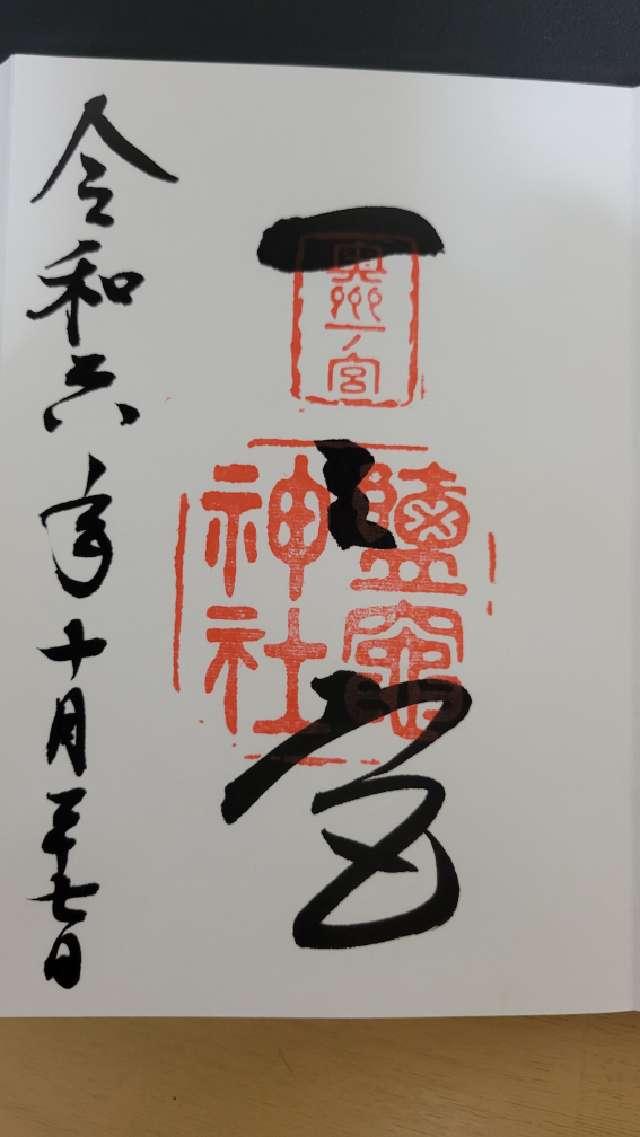 一之宮
奥州一ノ宮
鹽竈
神社
令和六年十月二十七日